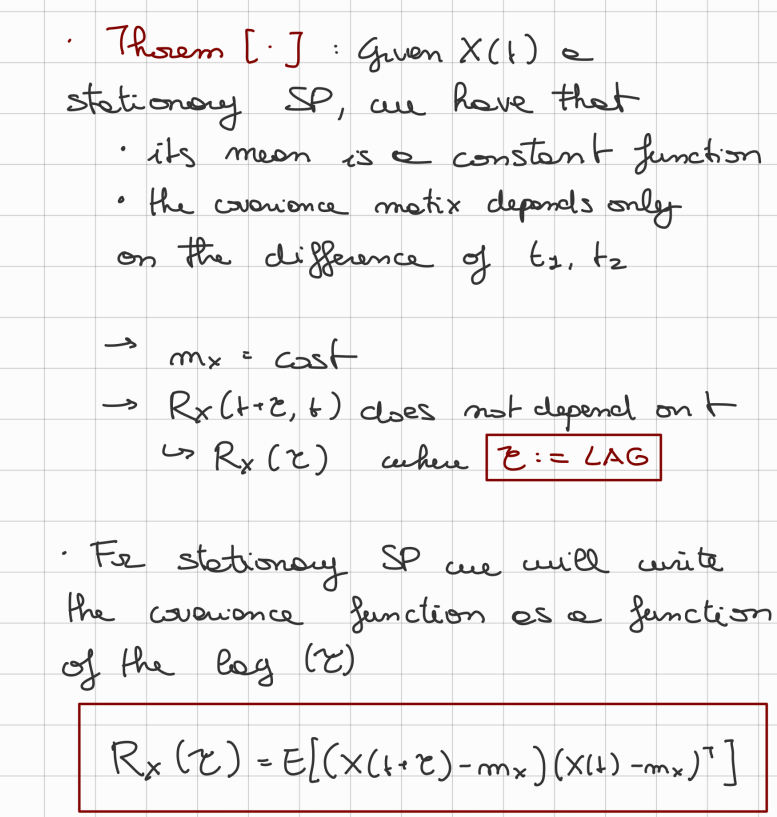 · Thorem [·] : Given X(t) a
stationary SP, we have that
· its mean is a constant function
· the covariance matix depends only
on the difference of t1, t2
→ mx = cost
→ Rx(t+τ, t) does not depend on t
↳ Rx(τ) where τ := LAG
· For stationary SP we will write
the covariance function as a function
of the lag (τ)
Rx(τ) = E[(X(t+τ)-mx)(X(t)-mx)ᵀ]